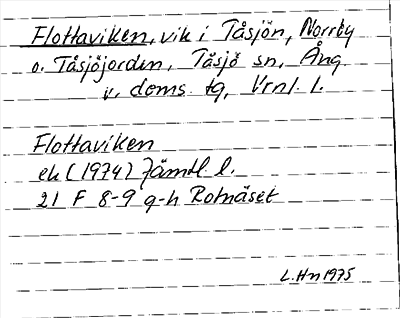 Flottaviken, vik i Tåsjön, Norrby
o. Tåsjöjorden, Tåsjö sn, Ång
v. doms. tg, Vrnl. l.
Flottaviken
ek (1974) Jämtl. l.
21 F 8-9 g-h Rotnäset
L.Hn 1975